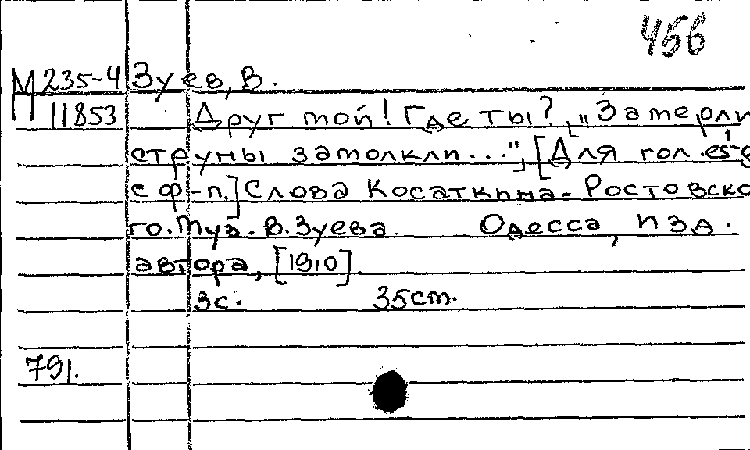 456
М 235-4 Зуев, В.
11853 Друг мой! Где ты? „Замерли
струны замолкли...", [Для гол. es¹-g
с ф-п.] Слова Косаткина-Ростовско
го. Муз. В. Зуева. Одесса, изд.
автора, [1910]
3с. 35см.
791.